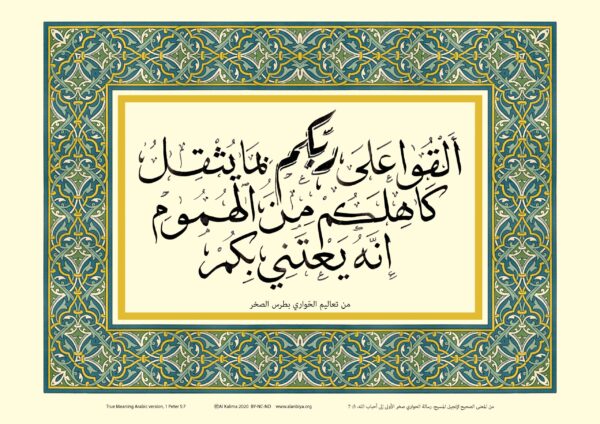 أَلْقُوا عَلَى رَبِّكُمْ بِمَا يُثْقِلُ
كَاهِلَكُمْ مِنَ الْهُمُومِ
إِنَّهُ يَعْتَنِي بِكُمْ
من تعاليم الحواري بطرس الصخر
True Meaning Arabic version, 1 Peter 5:7 Al Kalima 2020 BY-NC-ND www.alanbiya.org من المعنى الصحيح لإنجيل المسيح، رسالة الحواري صخر الأولى إلى أحباب الله، 5: 7